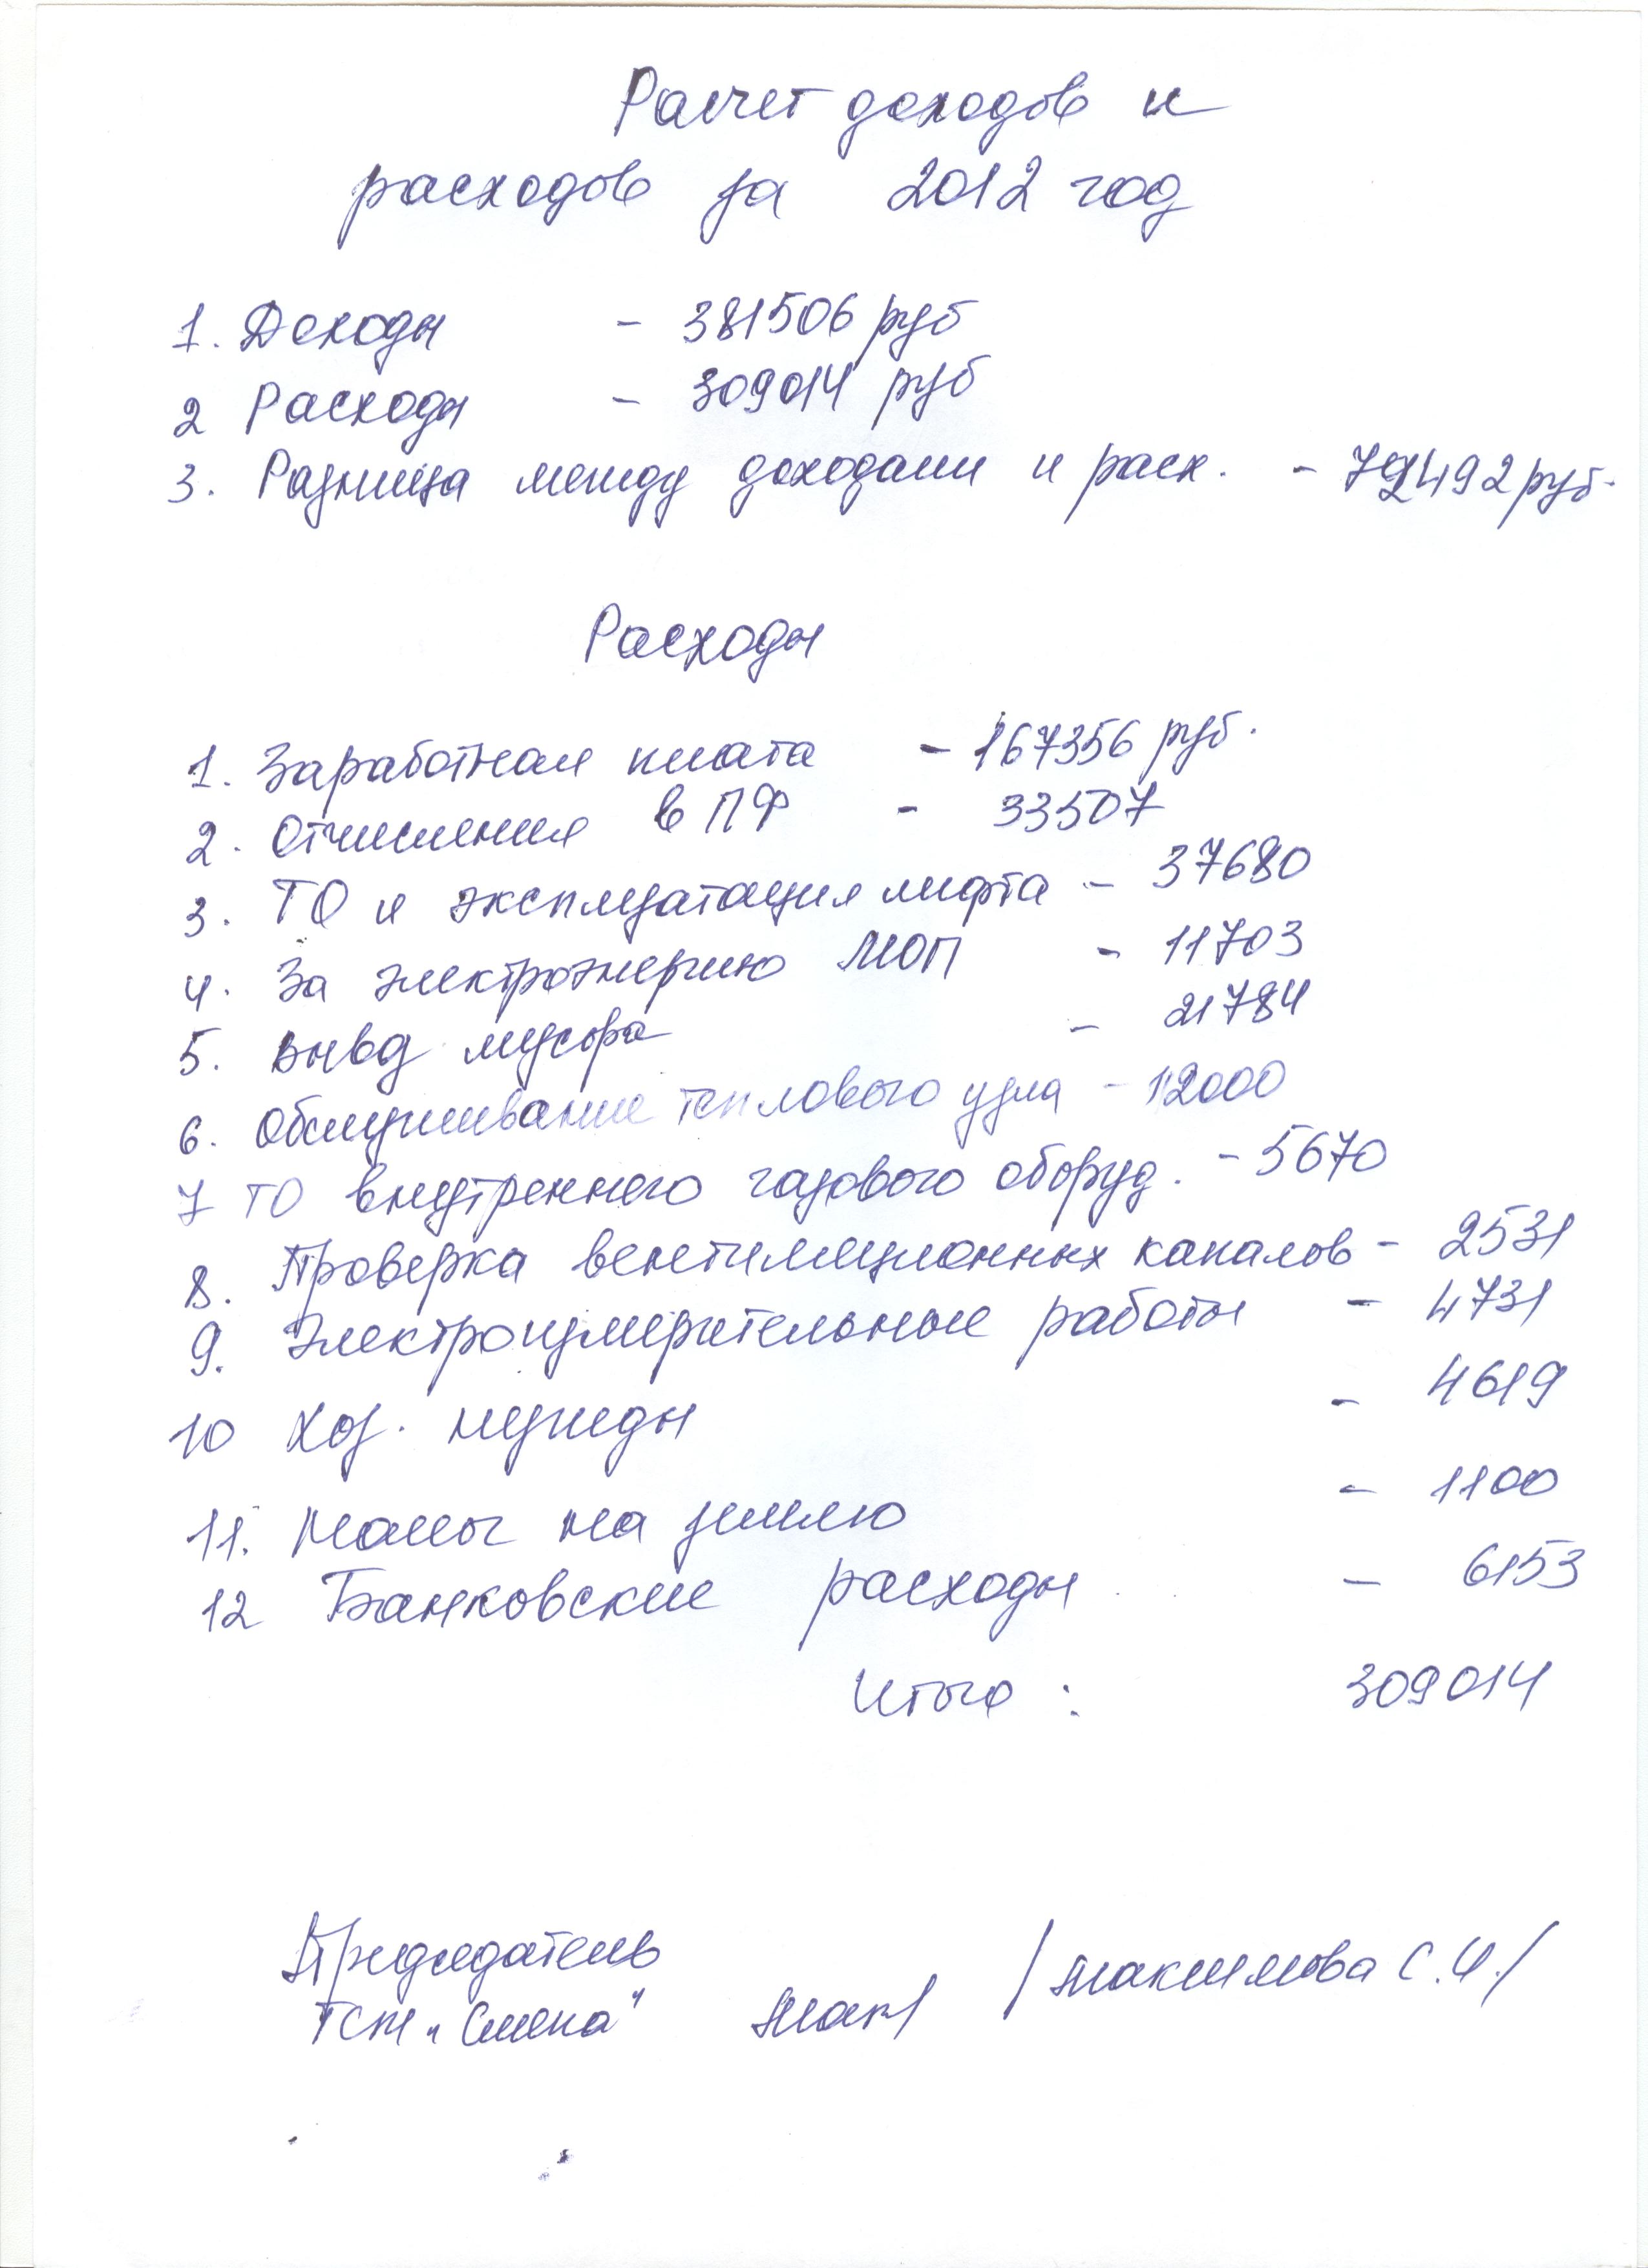 Расчет доходов и
расходов за 2012 год
1. Доходы - 381506 руб
2 Расходы - 309014 руб
3. Разница между доходами и расх. - 72492 руб.
Расходы
1. Заработная плата - 167356 руб.
2. Отчисления в ПФ - 33507
3. ТО и эксплуатация лифта - 37680
4. За электроэнергию МОП - 11703
5. Вывод мусора - 21784
6. Обслуживание теплового узла - 12000
7 ТО внутреннего газового оборуд. - 5670
8. Проверка вентиляционных каналов - 2531
9. Электроизмерительные работы - 4731
10 Хоз. нужды - 4619
11. Налог на землю - 1100
12 Банковские расходы - 6153
Итого : 309014
Председатель
ТСЖ „Смена" /Максимова С.И./